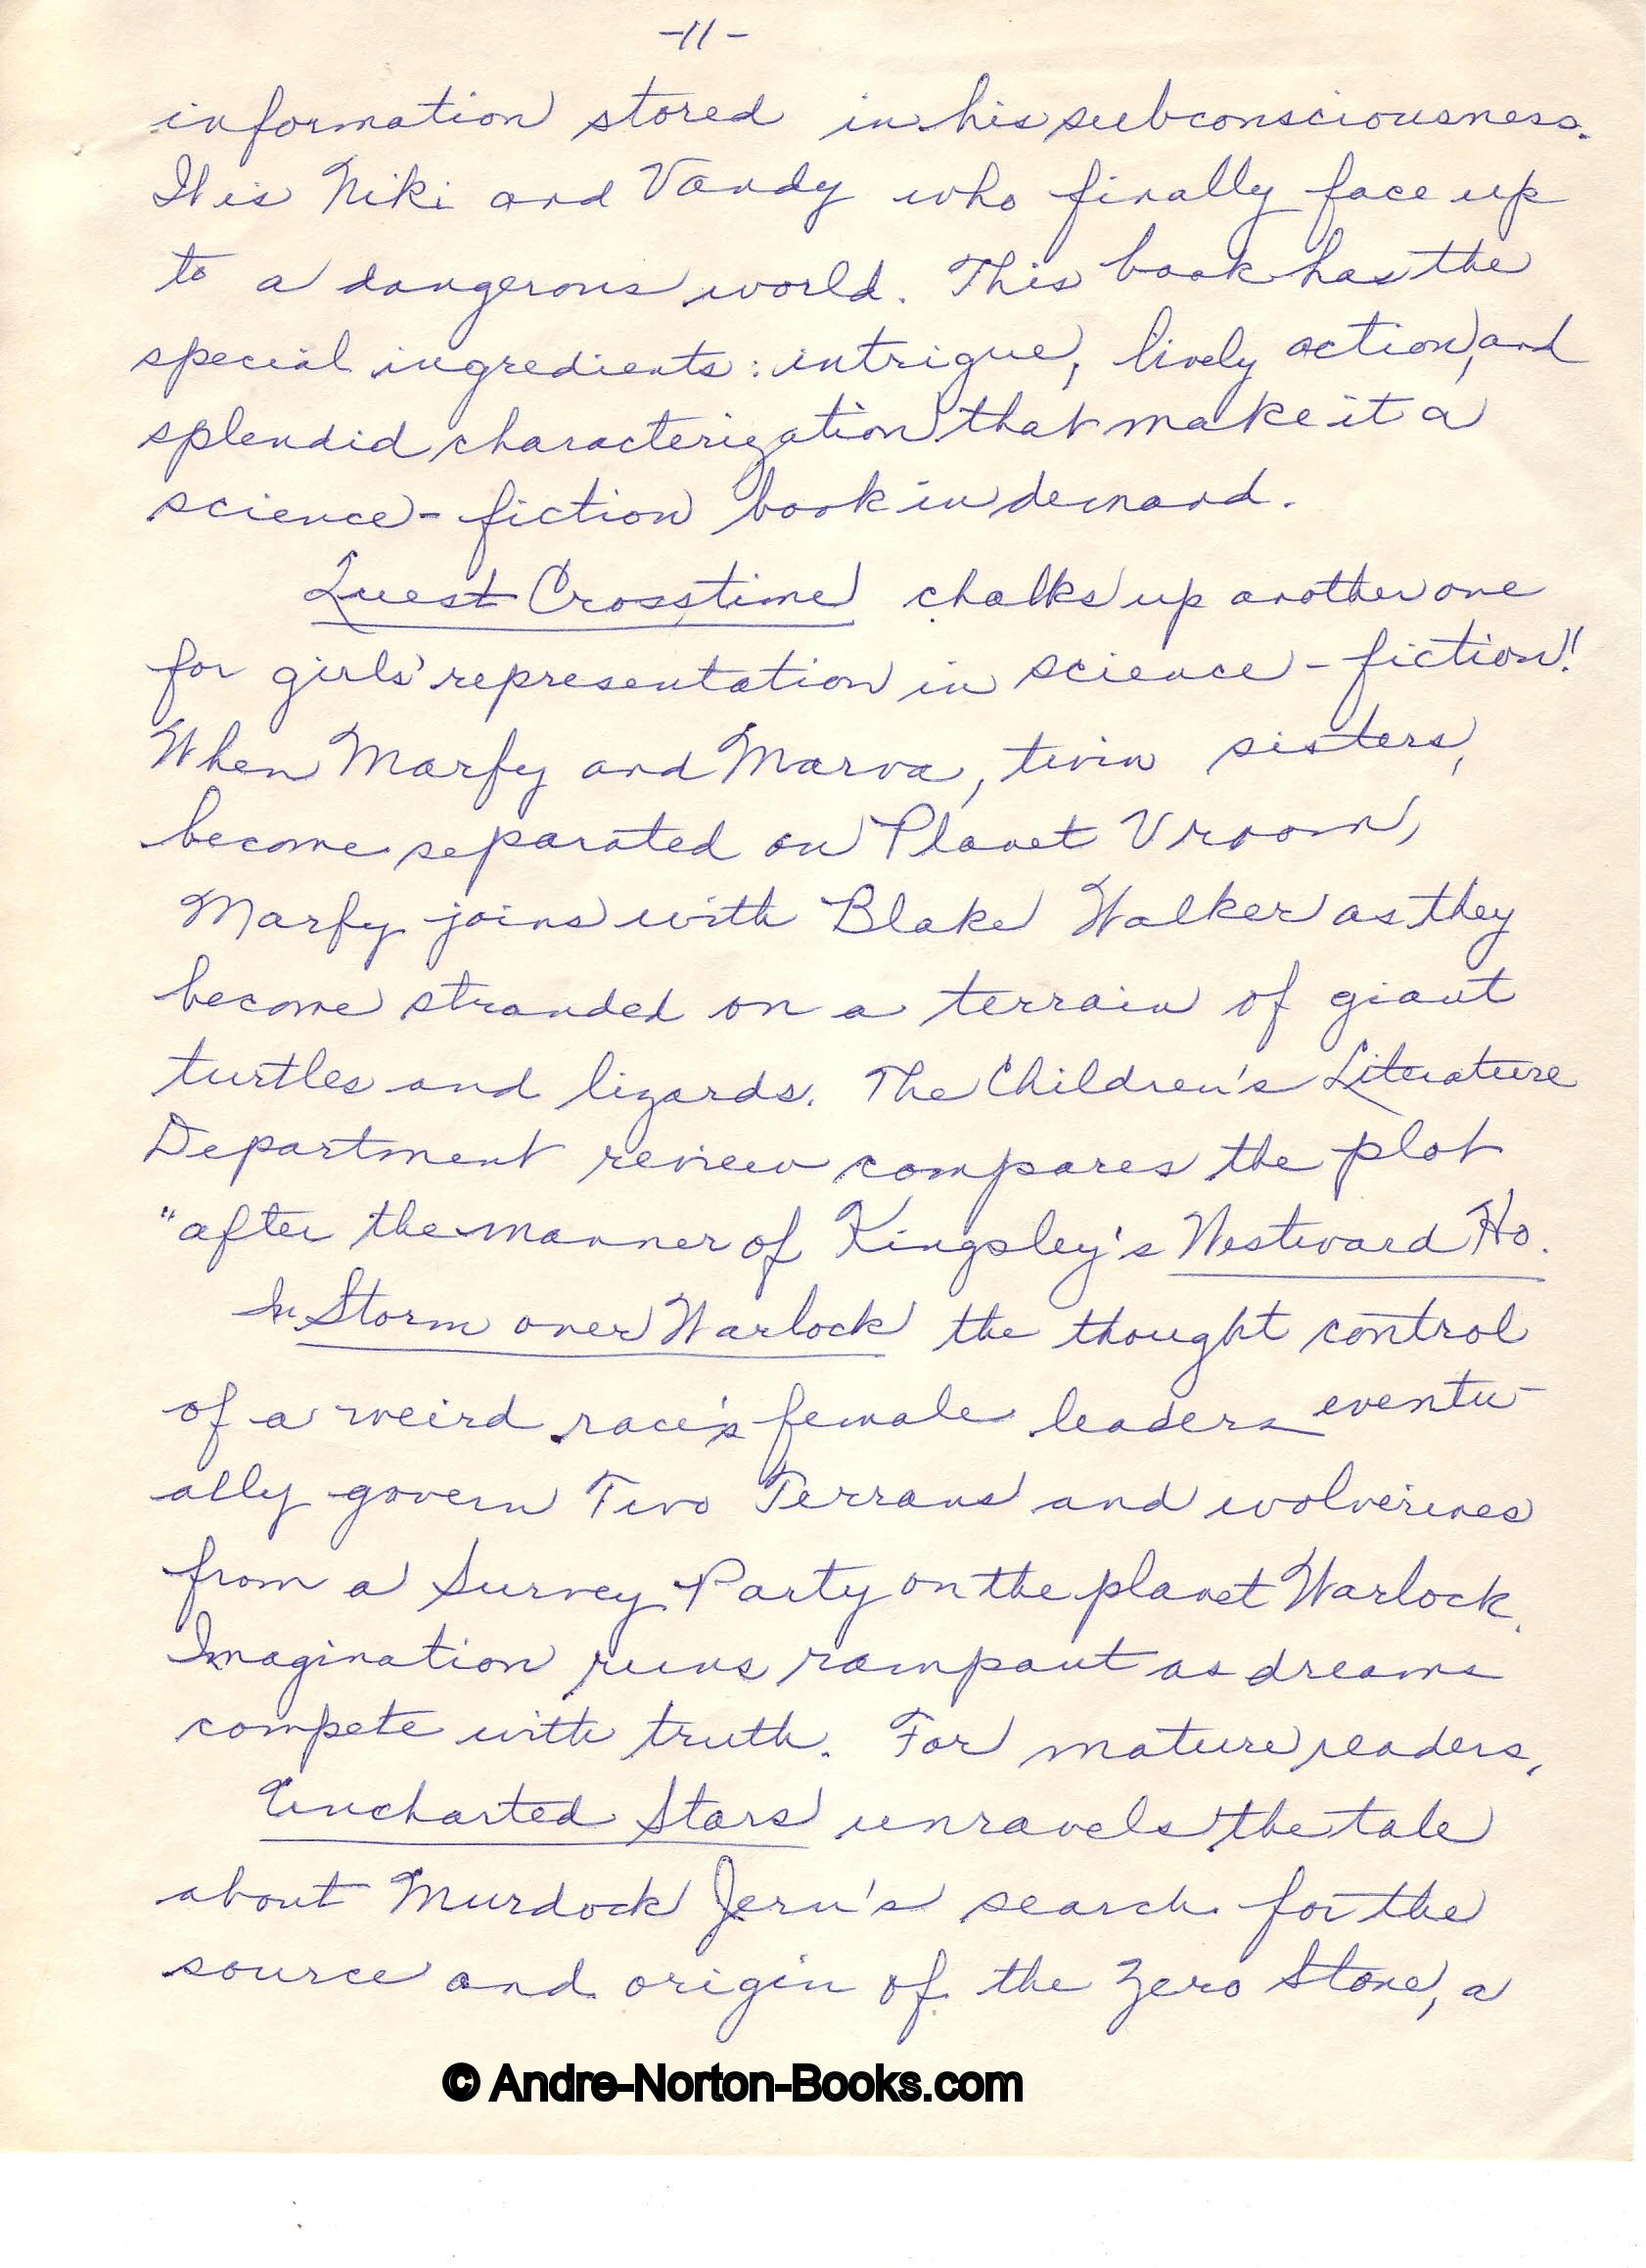 -11-
information stored in his subconsciousness.
It is Niki and Vandy who finally face up
to a dangerous world. This book has the
special ingredients: intrigue, lively action, and
splendid characterization that make it a
science-fiction book in demand.
Quest Crosstime chalks up another one
for girls' representation in science-fiction!
When Marfy and Marva, twin sisters,
become separated on Planet Vroom,
Marfy joins with Blake Walker as they
become stranded on a terrain of giant
turtles and lizards. The Children's Literature
Department review compares the plot
"after the manner of Kingsley's Westward Ho.
In Storm over Warlock the thought control
of a weird race's female leaders eventu-
ally govern Two Terrans and wolverines
from a Survey Party on the planet Warlock.
Imagination runs rampant as dreams
compete with truth. For mature readers.
Uncharted Stars unravels the tale
about Murdock Jern's search for the
source and origin of the Zero Stone, a
© Andre-Norton-Books.com